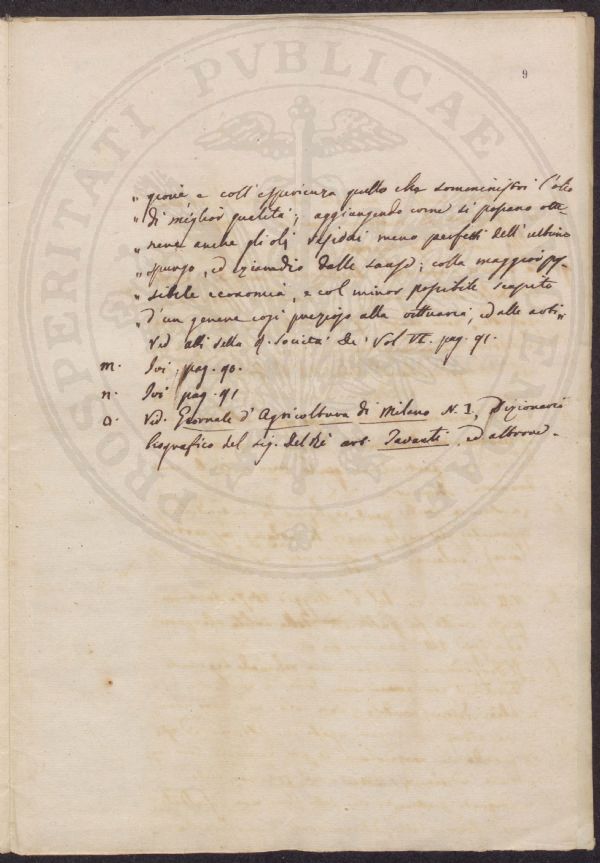 9
PROSPERITATI PVBLICAE
„ gioni e coll'esperienza quello che somministri l'olio
„ di miglior qualità; aggiungendo come si possano otte-
„ nere anche gli olj residui meno perfetti dell'ultimo
„ spurgo, ed eziandio dalle sanse; colla maggior pos-
„ sibile economia, e col minor possibile scapito
„ d'un genere così prezioso alla vettuaria, ed alle arti„
Ved atti della d. Società de' Vol VI. pag. 91.
m. Ivi, pag. 90.
n. Ivi pag 91
o. Ved. Giornale d'Agricoltura di Milano N. I, Dizionario
biografico del sig. del Rè art. Tavanti, ed altrove.